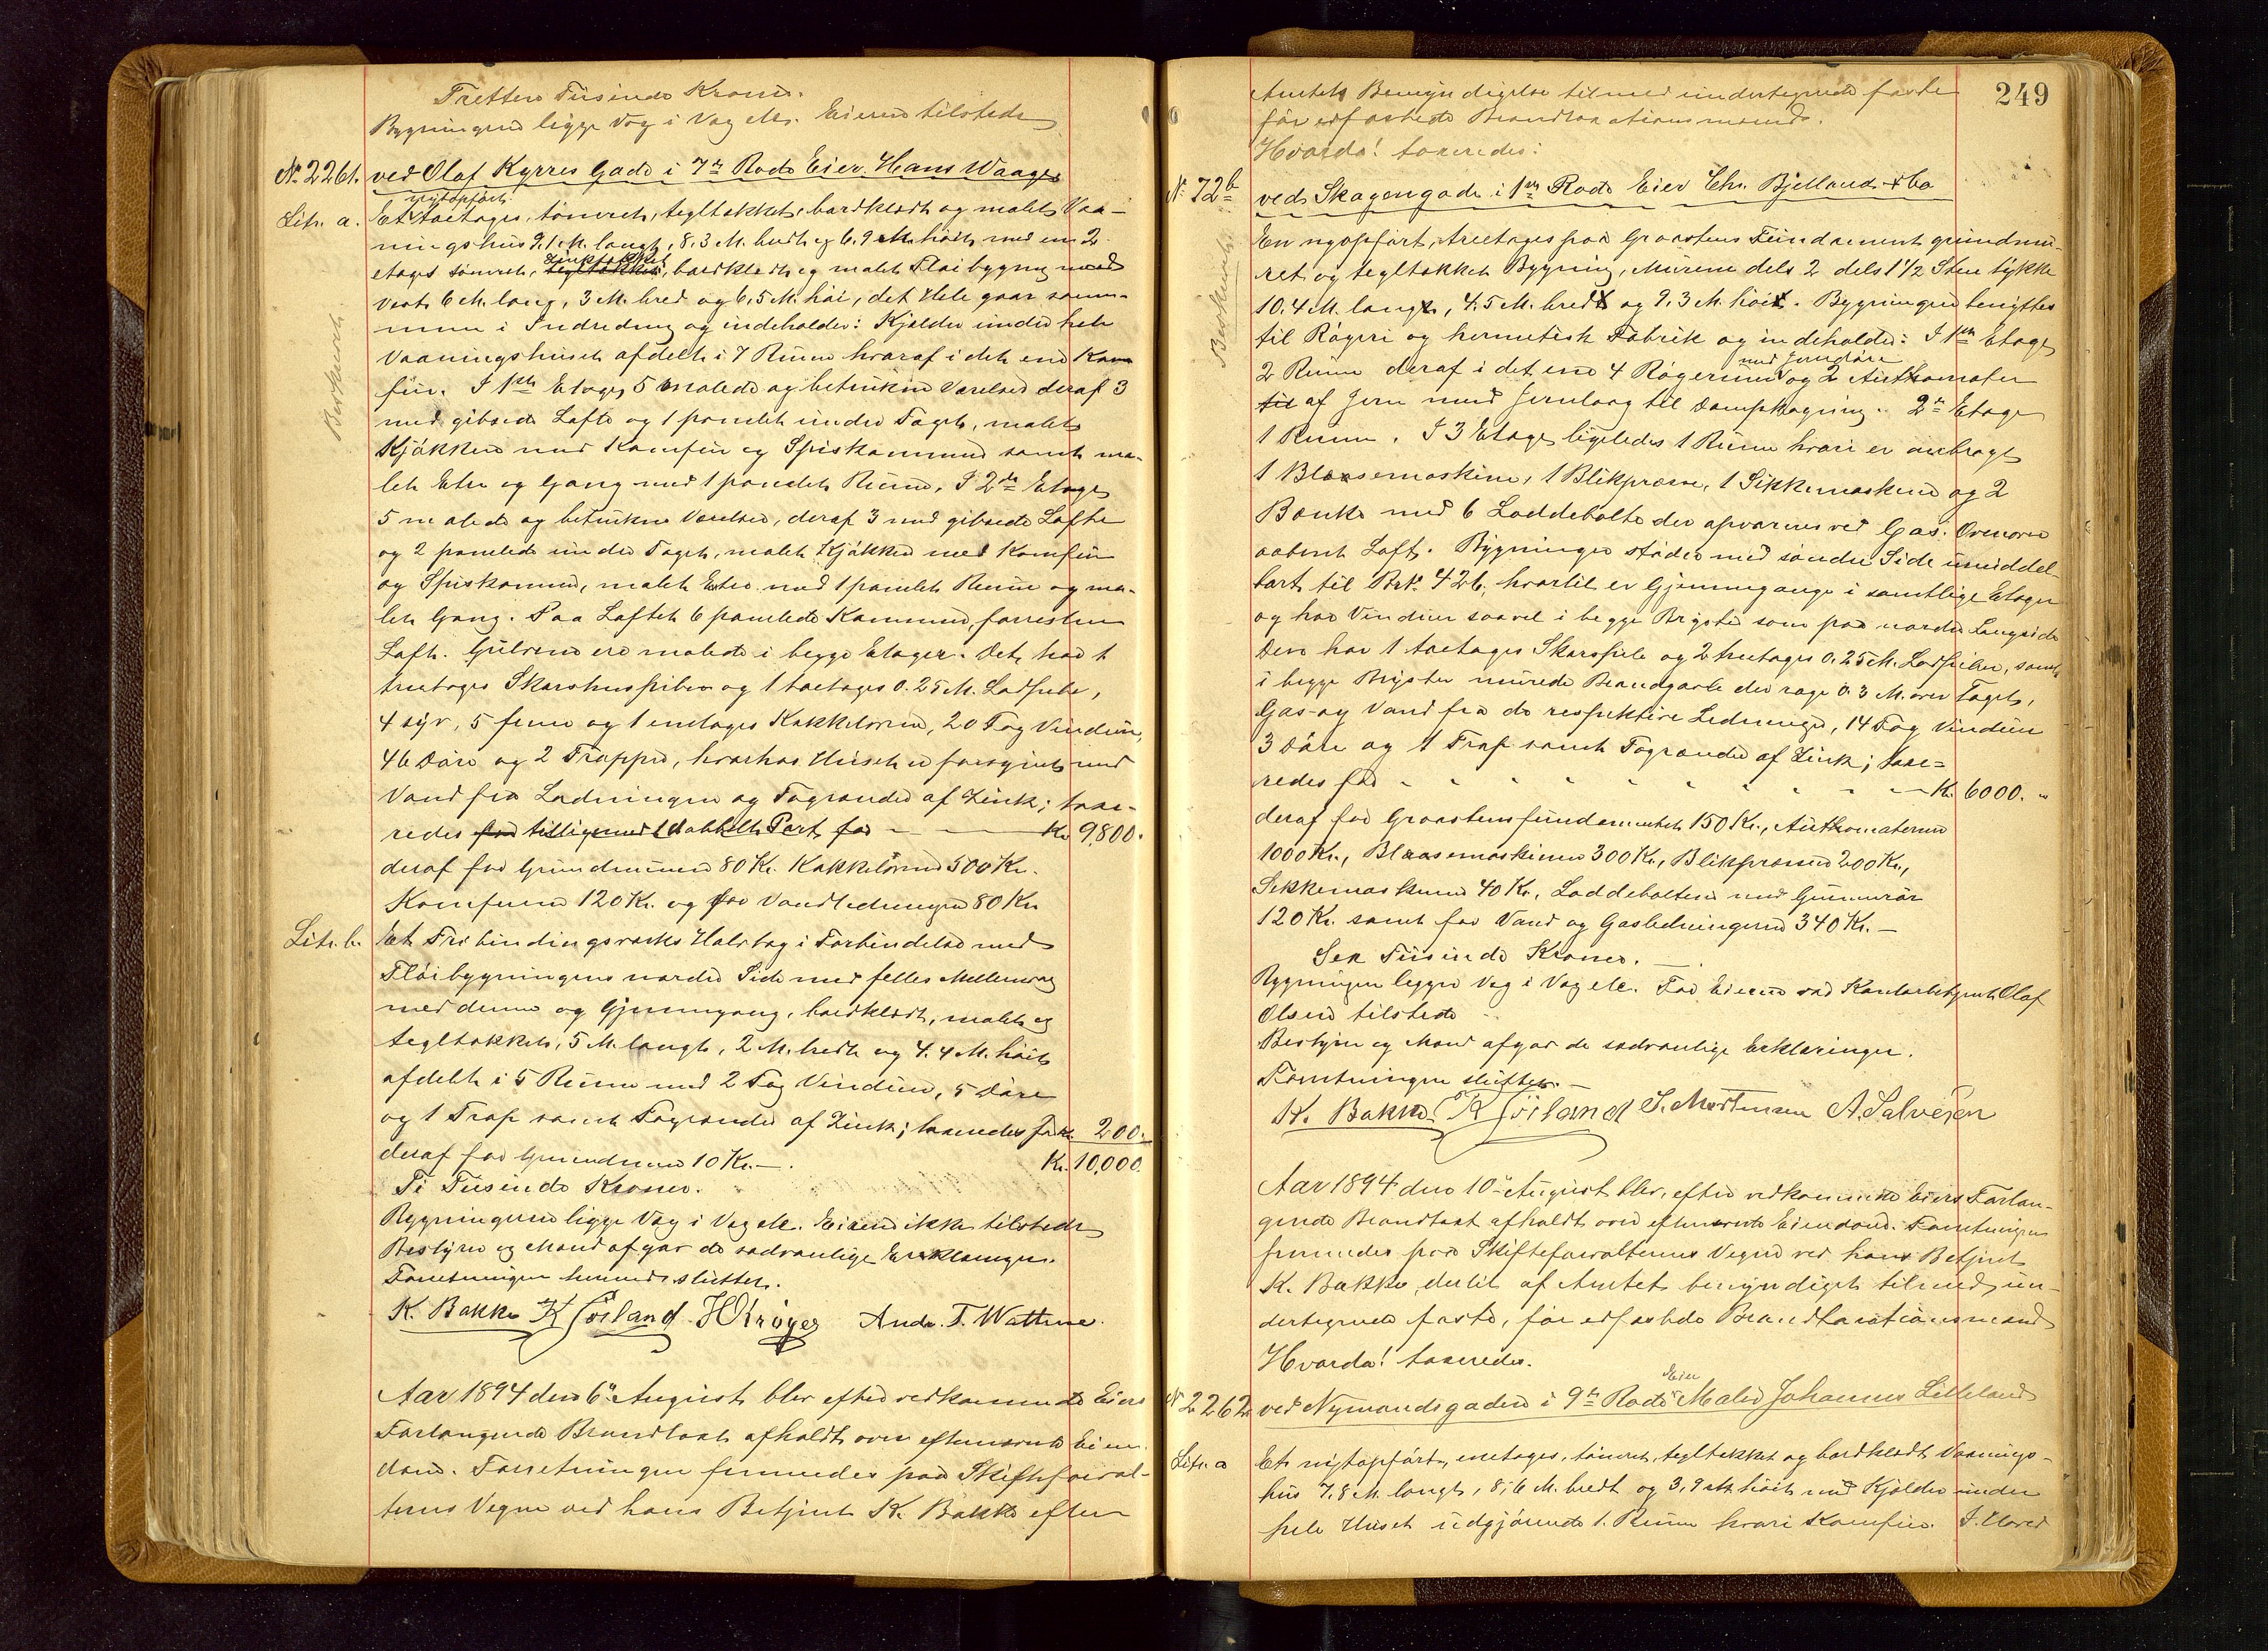 Tretten Tusinde Kroner.
Bygningen ligge Væg i Væg etc. Eieren tilstede
No 2261. ved Olaf Kyrres Gade i 7de Rode Eier Hans Waage
nyopført
Litr. a. Et toetages, tømret, tegltækket, bordklædt og malet Vaa-
ningshus 9.1 M. langt, 8.3 M. bredt og 6.9 M. høit med en 2
zinktækket
etages tømret, tegltækket, bordklædt og malet Fløibygning mod
Vest 6 M. lang, 3 M. bred og 6.5 M. høi, det Hele gaar sam-
men i Indredning og indeholder: Kjelder under hele
Vaaningshuset afdelt i 7 Rum hvoraf i det ene Kom
fur. I 1ste Etage 5 malede og betrukne Værelser deraf 3
med gibsede Lofte og 1 panelet under Taget, malet
Kjøkken med Komfur og Spiskammer samt ma-
let Entre og Gang med 1 panelet Rum. I 2den Etage
5 malede og betrukne Værelser, deraf 3 med gibsede Lofte
og 2 panelede under Taget, malet Kjøkken med Komfur
og Spiskammer, malet Entre med 1 panelet Rum og ma-
let Gang. Paa Loftet 6 panelede Kammere, forresten
Loft. Gulvene ere malede i begge Etager. Det har 1
treetages Skorstenspibe og 1 toetages 0.25 M. Lodpibe,
4 syv, 5 fem og 1 enetages Kakkelovne, 20 Fag Vinduer,
46 Døre og 2 Trapper, hvorhos Huset er forsynet med
Vand fra Ledningen og Tagrender af Zink; taxe-
redes for tilligemed 1 dobbelt Port for - - Kr 9,800.
deraf for Grundmuren 80 Kr. Kakkelovne 500 Kr.
Komfurene 120 Kr. og for Vandledningen 80 Kr
Litr. b. Et Tre bindingsværks Halvtag i Forbindelse med
Fløibygningens nordre Side med fælles Mellemvæg
med denne og Gjennemgang, bordklædt, malet og
tegltækket, 5 M. langt, 2 M. bredt og 4.4 M. høit
afdelt i 5 Rum med 2 Fag Vinduer, 5 Døre
og 1 Trap samt Tagrender af Zink; taxeredes for Kr 200.
deraf for Grundmuren 10 Kr. -. Kr. 10,000.
Ti Tusinde Kroner.
Bygningerne ligge Væg i Væg etc. Eieren ikke tilstede
Bestyrer og Mænd afgav de sædvanlige Erklæringer.
Forretningen hermed sluttet.
K. Bakke K Jørland H Krøger Andr. T. Wattne.
Beskuret
Aar 1894 den 6te August blev efter vedkommende Eiers
Forlangende Brandtaxt afholdt over eftermeldte Eien-
dom. Forretningen fremmedes paa Skifteforval-
terens Vegne ved hans Betjent K. Bakke efter
249
Amtets Bemyndigelse tilmed undertegnede faste
før edfæstede Brandtaxationsmænd.
Hvorda! taxeredes:
No 72b ved Skagengade i 1ste Rode Eier Chr. Bjelland & Co
Beskuret
En nyopført, treetages paa Graastens Fundament grundmu-
ret og tegltækket Bygning, Murene dels 2 dels 1 1/2 Sten tykke
10.4 M. lang, 4.5 M. bred og 9.3 M. høi. Bygningen benyttes
til Røgeri og hermetisk Fabrik og indeholder: I 1ste Etage
med Jerndøre
2 Rum deraf i det ene 4 Røgerum og 2 Authomater
til af Jern med Jernlaag til Dampkogning. 2den Etage
1 Rum. I 3 Etage ligeledes 1 Rum hvori er anbragt
1 Blæsemaskine, 1 Blikpresse, 1 Sikkemaskine og 2
Bænke med 6 Loddebolte der opvarmes ved Gas. Ovenover
aabent Loft. Bygningen støder med søndre Side umiddel-
bart til Brt. 426, hvortil er Gjennemgange i samtlige Etager
og har Vinduer saavel i begge Bryster som paa nordre Langside
Den har 1 toetages Skorspibe og 2 treetages 0.25 M. Lodpiber, samt
i begge Bryster murede Brandgavle der rage 0.3 M. over Taget,
Gas og Vand fra de respektive Ledninger, 14 Fag Vinduer
3 Døre og 1 Trap samt Tagrender af Zink; taxe=
redes for - - - - - - - - Kr. 6000. "
deraf for Graastensfundamentet 150 Kr., Authomaterne
1000 Kr., Blæsemaskinen 300 Kr., Blikpressen 200 Kr.,
Sikkemaskinen 40 Kr., Loddeboltene med Gummirør
120 Kr. samt for Vand og Gasledningerne 340 Kr. -
Sex Tusinde Kroner.
Bygningen ligger Væg i Væg etc. For Eieren var Kontorbetjent Olaf
Olsen tilstede
Bestyrer og Mænd afgav de sædvanlige Erklæringer.
Forretningen sluttet. -
K. Bakke K Jørland S. Mortensen A. Salvesen
Aar 1894 den 10de August blev, efter vedkommende Eiers Forlan-
gende Brandtaxt afholdt over eftermeldte Eiendom. Forretningen
fremmedes paa Skifteforvalterens Vegne ved hans Betjent
K. Bakke, dertil af Amtet bemyndiget tilmed un-
dertegnede faste, før edfæstede Brandtaxationsmænd
Hvorda! taxeredes.
Eier
No 2262 ved Nymandsgaden i 9de Rode Maler Johannes Lilleland
Litr. a Et nyopført, enetages, tømret, tegltækket og bordklædt Vaanings-
hus 7.8 M. langt, 8,6 M. bredt og 3,9 M. høit med Kjelder under
hele Huset udgjørende 1 Rum hvori Komfur. I Hoved